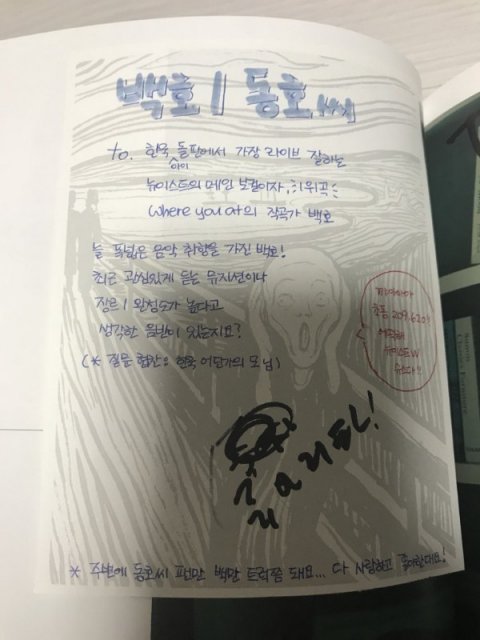 백호 | 동호씨
to. 한국 돌판에서 가장 라이브 잘하는
아이
뉴이스트의 메인 보컬이자, 위곡
where you at의 작곡가 백호
늘 폭넓은 음악 취향을 가진 백호!
최근 관심있게 듣는 뮤지션이나
장르 | 완성도가 높다고
생각한 음반이 있는지요?
(* 질문 협찬: 한국 어딘가의 모 님)
초동 209,620!!
뉴이스트W
* 주변에 동호씨 팬만 백만 트럭쯤 돼요... 다 사랑하고 좋아한대요!